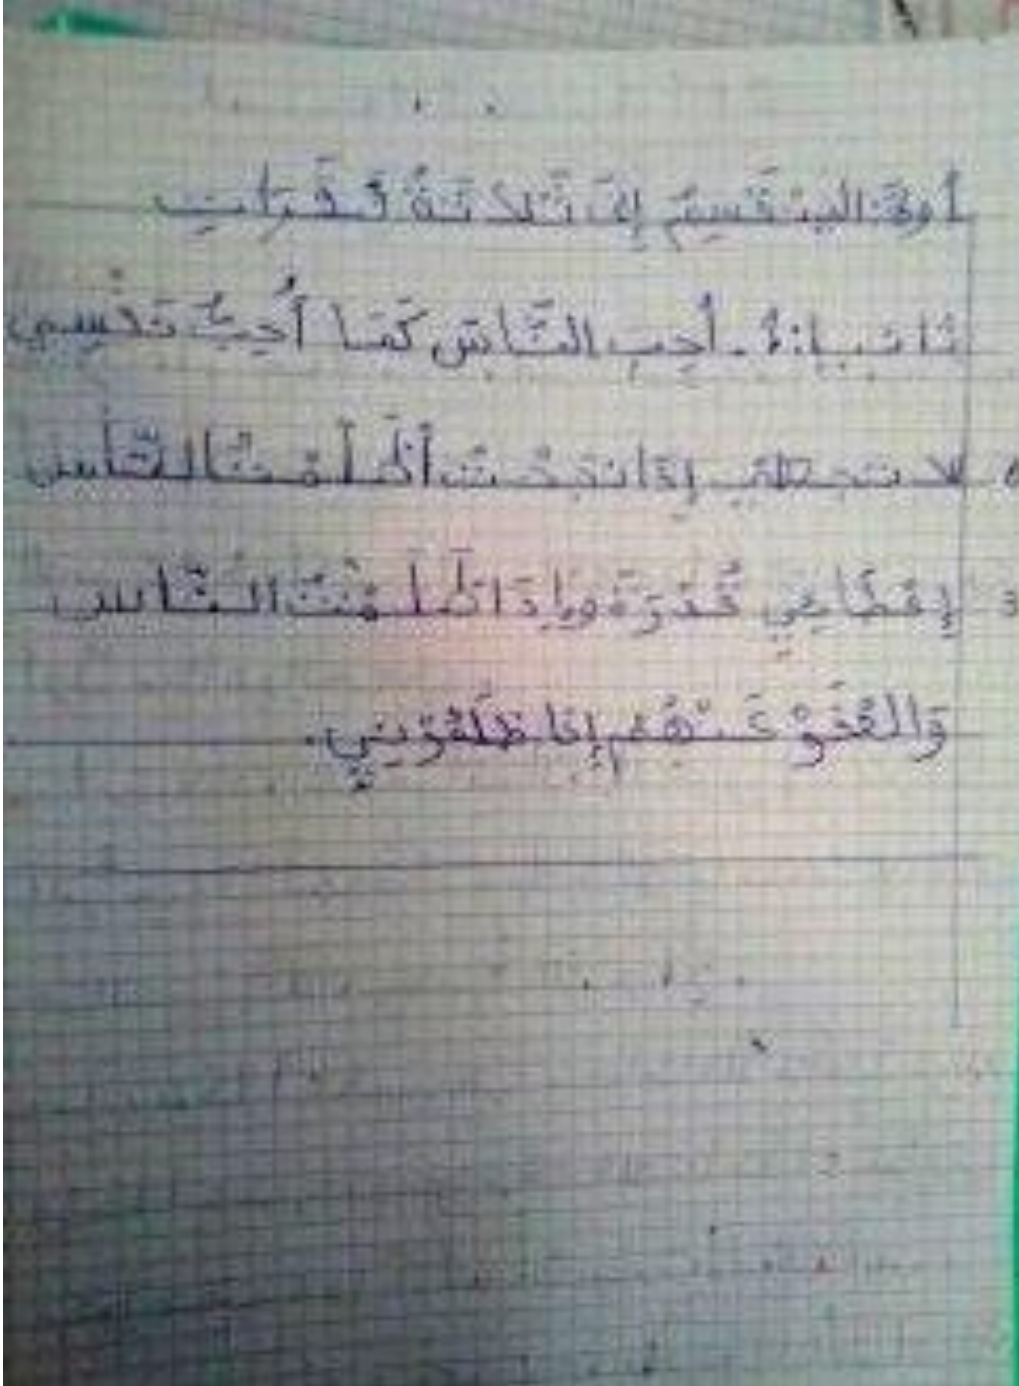 أولا: ينقسم إلى ثلاثة فقرات
ثانيا: 1- أحب النَّاسَ كَمَا أُحِبُّ نَفْسِي
لا تجعلني إذا نجحت أظلمت النَّاس
3 إعطائي قُدْرَة وإذا ظلمت النَّاس
وَالعَفْوْ عَنْهُم إذا ظَلَمُونِي.